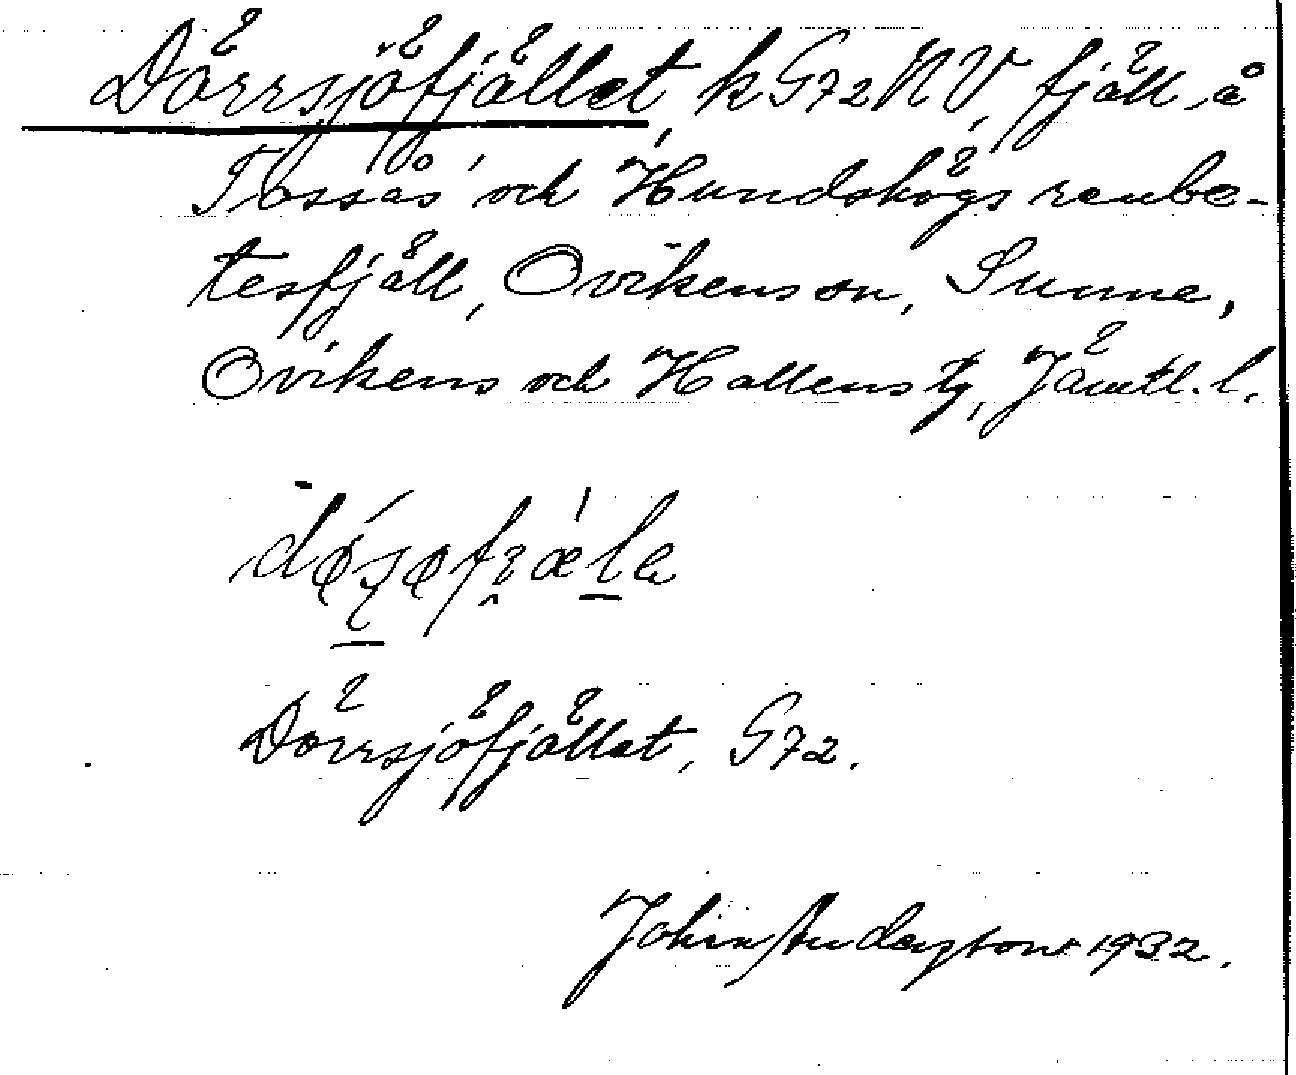 Dörrsjöfjället, k G72 NV, fjäll å
Tossås och Hundshögs renbe-
tesfjäll, Ovikens sn, Sunne,
Ovikens och Hallens tg, Jämtl. l.
Dörrsjöfjället, G72.
John Andersson 1932.